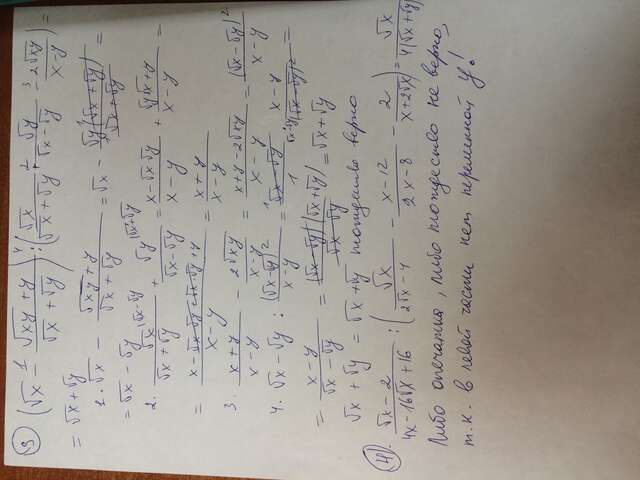 3) (√x - (√xy + y)/(√x + √y)) : (√x/(√x + √y) + √y/(√x - √y) - 2√xy/(x - y)) =
= √x + √y
1. √x - (√xy + y)/(√x + √y) = √x - √y(√x + √y)/(√x + √y) =
= √x - √y
2. √x/(√x + √y) + √y/(√x - √y) = (x - √x √y)/(x - y) + (√y √x + y)/(x - y) =
= (x - √x √y + √x · √y + y)/(x - y) = (x + y)/(x - y)
3. (x + y)/(x - y) - 2√xy/(x - y) = (x + y - 2√xy)/(x - y) = (√x - √y)²/(x - y)
4. √x - √y : (√x - √y)²/(x - y) = (√x - √y)/1 · (x - y)/(√x - √y)² =
= (x - y)/(√x - √y) = (√x - √y)(√x + √y)/(√x - √y) = √x + √y
√x + √y = √x + √y тождество верно
4) (√x - 2)/(4x - 16√x + 16) : (√x/(2√x - 4) - (x - 12)/(2x - 8) - 2/(x + 2√x)) = √x/(4(√x + √y))
Либо опечатка, либо тождество не верно,
т.к. в левой части нет переменной y!